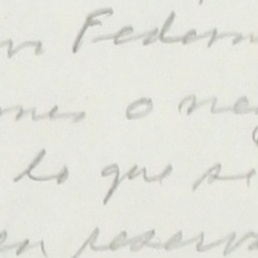 en Federa
nes o neg
lo que se
en reserv